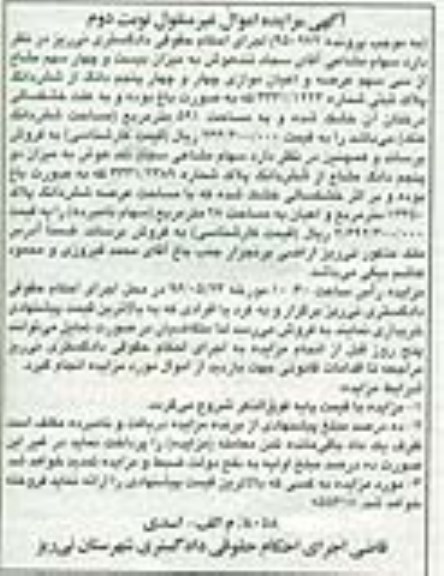 آگهی مزایده اموال غیر منقول نوبت دوم
به موجب پرونده اجرای احکام حقوقی دادگستری نی‌ریز در نظر
دارد سهام مشاعی آقای سجاد به میزان بیست و چهار سهم مشاع
از سی سهم عرصه و اعیان موازی چهار و چهار پنجم دانگ از ششدانگ
پلاک ثبتی شماره که به صورت باغ بوده و به علت خشکسالی
درختان آن خشک شده و به مساحت مترمربع (مساحت ششدانگ
ملک) می‌باشد را به قیمت ریال (قیمت کارشناسی) به فروش
برساند و همچنین در نظر دارد سهام مشاعی سجاد به میزان دو
پنجم دانگ مشاع از ششدانگ پلاک شماره که به صورت باغ
بوده و بر اثر خشکسالی خشک شده که با مساحت عرصه ششدانگ پلاک
مترمربع و اعیان به مساحت مترمربع (سهام نامبرده) را به قیمت
ریال (قیمت کارشناسی) به فروش برساند. ضمناً آدرس
ملک مذکور نی‌ریز اراضی جنب باغ آقای محمد فیروزی و محمود
می‌باشد.
مزایده رأس ساعت ۱۰:۳۰ مورخه در محل اجرای احکام حقوقی
دادگستری نی‌ریز برگزار و به فرد یا افرادی که به بالاترین قیمت پیشنهادی
خریداری نمایند به فروش می‌رسد لذا متقاضیان در صورت تمایل می‌توانند
پنج روز قبل از انجام مزایده به اجرای احکام حقوقی دادگستری نی‌ریز
مراجعه تا اقدامات قانونی جهت بازدید از اموال مورد مزایده انجام گیرد.
شرایط مزایده:
۱- مزایده با قیمت پایه فوق‌الذکر شروع می‌گردد.
۲- ده درصد مبلغ پیشنهادی از برنده مزایده دریافت و نامبرده مکلف است
ظرف یک ماه باقی‌مانده ثمن معامله (مزایده) را پرداخت نماید در غیر این
صورت ده درصد مبلغ اولیه به نفع دولت ضبط و مزایده تجدید خواهد شد
۳- مورد مزایده به کسی که بالاترین قیمت پیشنهادی را ارائه نماید فروخته
خواهد شد.
م الف- اسدی
قاضی اجرای احکام حقوقی دادگستری شهرستان نی‌ریز